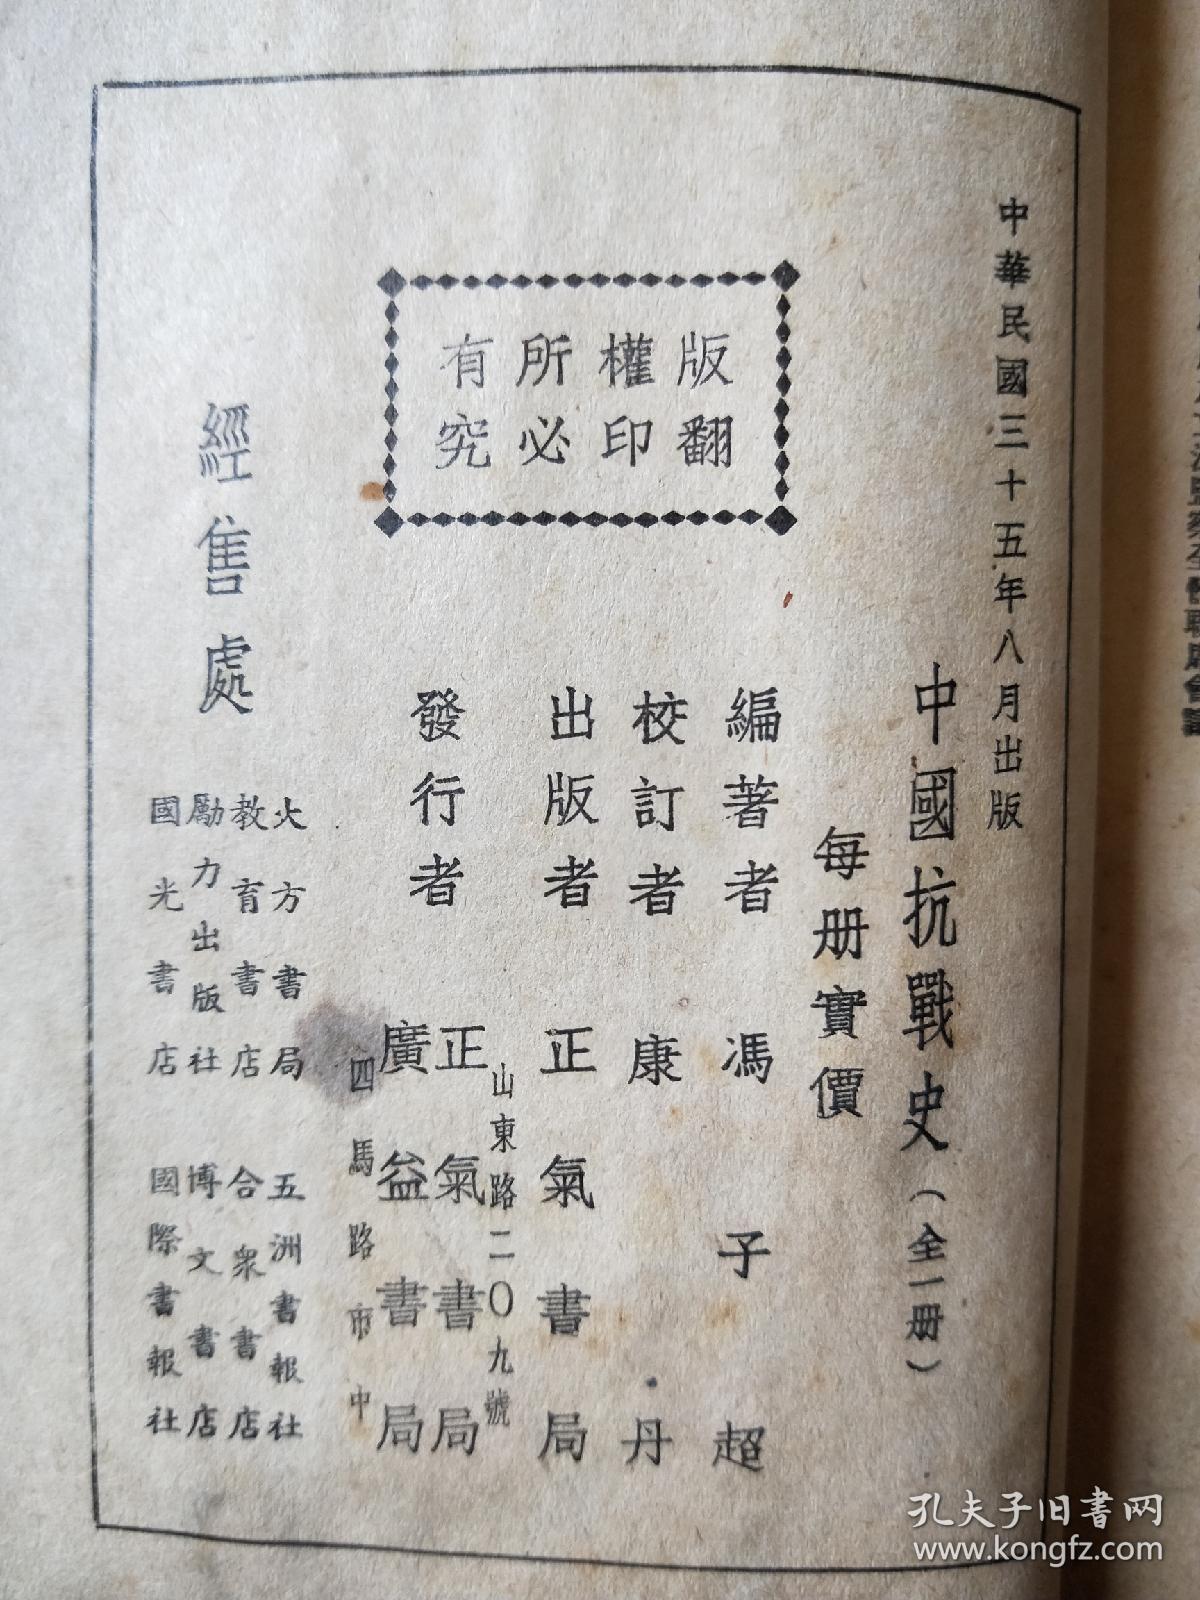 中華民國三十五年八月出版
中國抗戰史（全一册）
每册實價
編著者 馮子超
校訂者 康丹
出版者 正氣書局
山東路二〇九號
發行者 正氣書局
廣益書局
四馬路市中
版權所有
翻印必究
經售處
大方書局 五洲書報社
教育書店 合衆書店
勵力出版社 博文書店
國光書店 國際書報社
孔夫子旧书网
www.kongfz.com